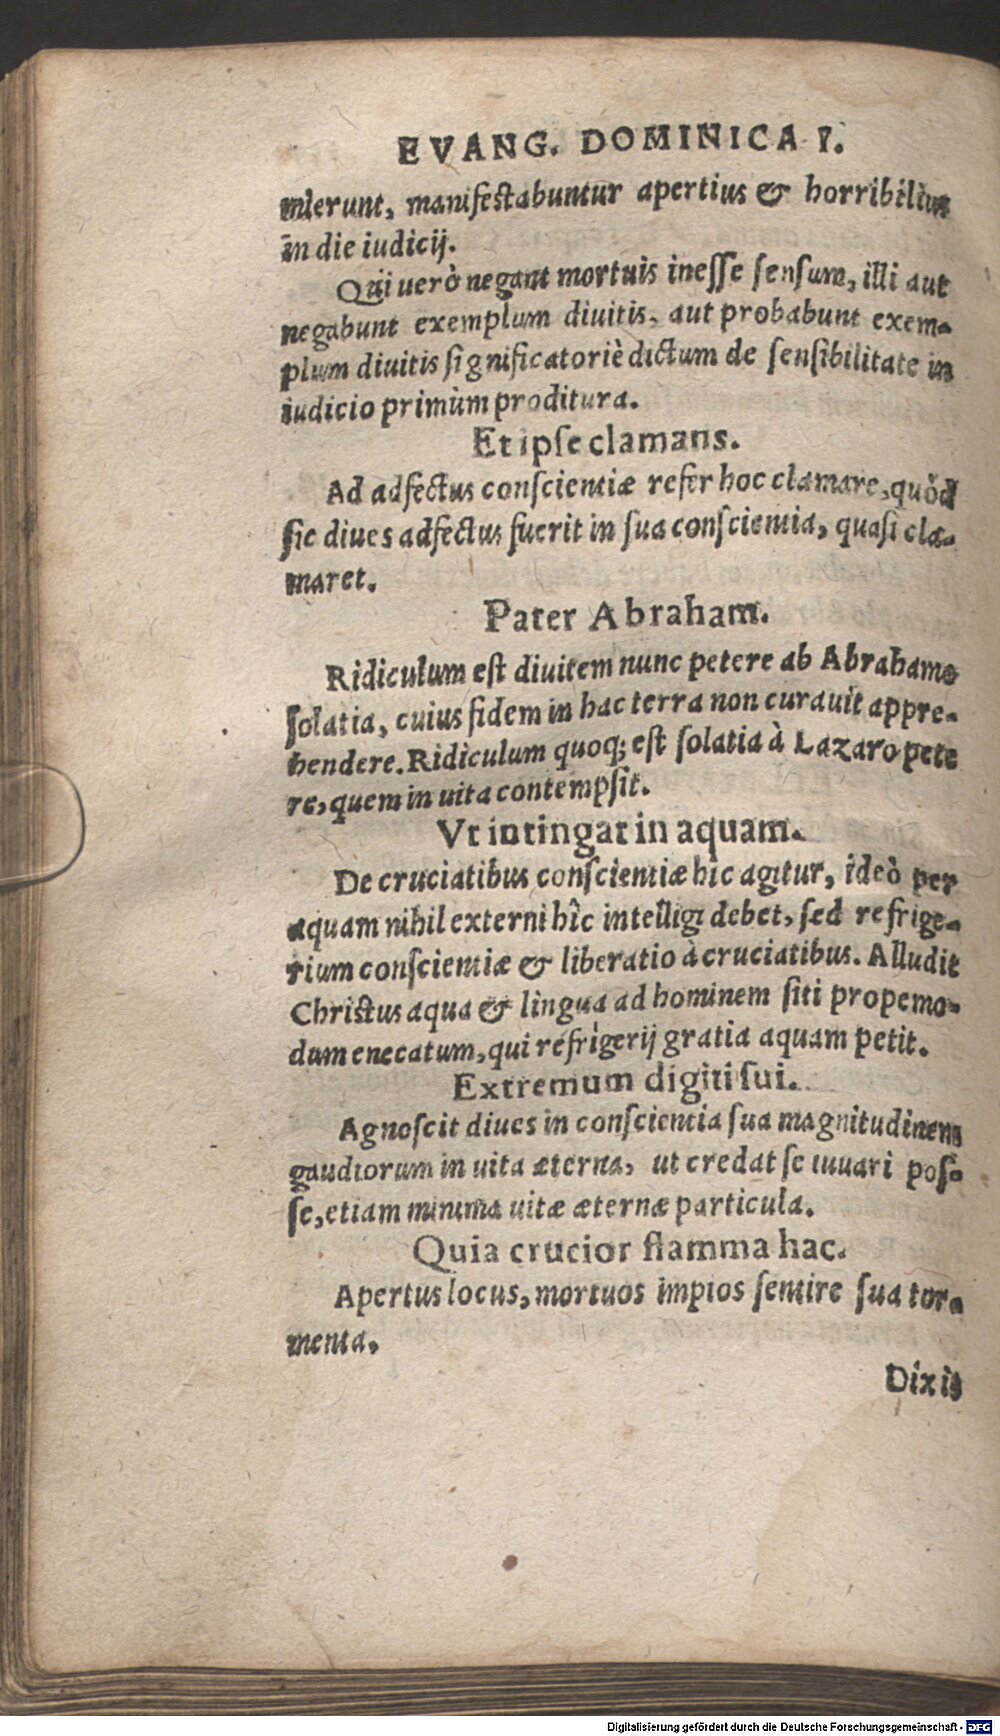 EVANG. DOMINICA I.
nierunt, manifestabuntur apertius & horribilius
in die iudicij.
Qui uerò negant mortuis inesse sensum, illi aut
negabunt exemplum diuitis, aut probabunt exem-
plum diuitis significatoriè dictum de sensibilitate in
iudicio primùm proditura.
Et ipse clamans.
Ad adfectus conscientiæ refer hoc clamare, quòd
sic diues adfectus fuerit in sua conscientia, quasi cla-
maret.
Pater Abraham.
Ridiculum est diuitem nunc petere ab Abrahamo
solatia, cuius fidem in hac terra non curauit appre-
hendere. Ridiculum quoq; est solatia à Lazaro pete
re, quem in uita contempsit.
Vt intingat in aquam.
De cruciatibus conscientiæ hic agitur, ideò per
aquam nihil externi hîc intelligi debet, sed refrige-
rium conscientiæ & liberatio à cruciatibus. Alludit
Christus aqua & lingua ad hominem siti propemo-
dum enecatum, qui refrigerij gratia aquam petit.
Extremum digiti sui.
Agnoscit diues in conscientia sua magnitudinem
gaudiorum in uita æterna, ut credat se iuuari pos-
se, etiam minima uitæ æternæ particula.
Quia crucior flamma hac.
Apertus locus, mortuos impios sentire sua tor-
menta.
Dixit
Digitalisierung gefördert durch die Deutsche Forschungsgemeinschaft - DFG